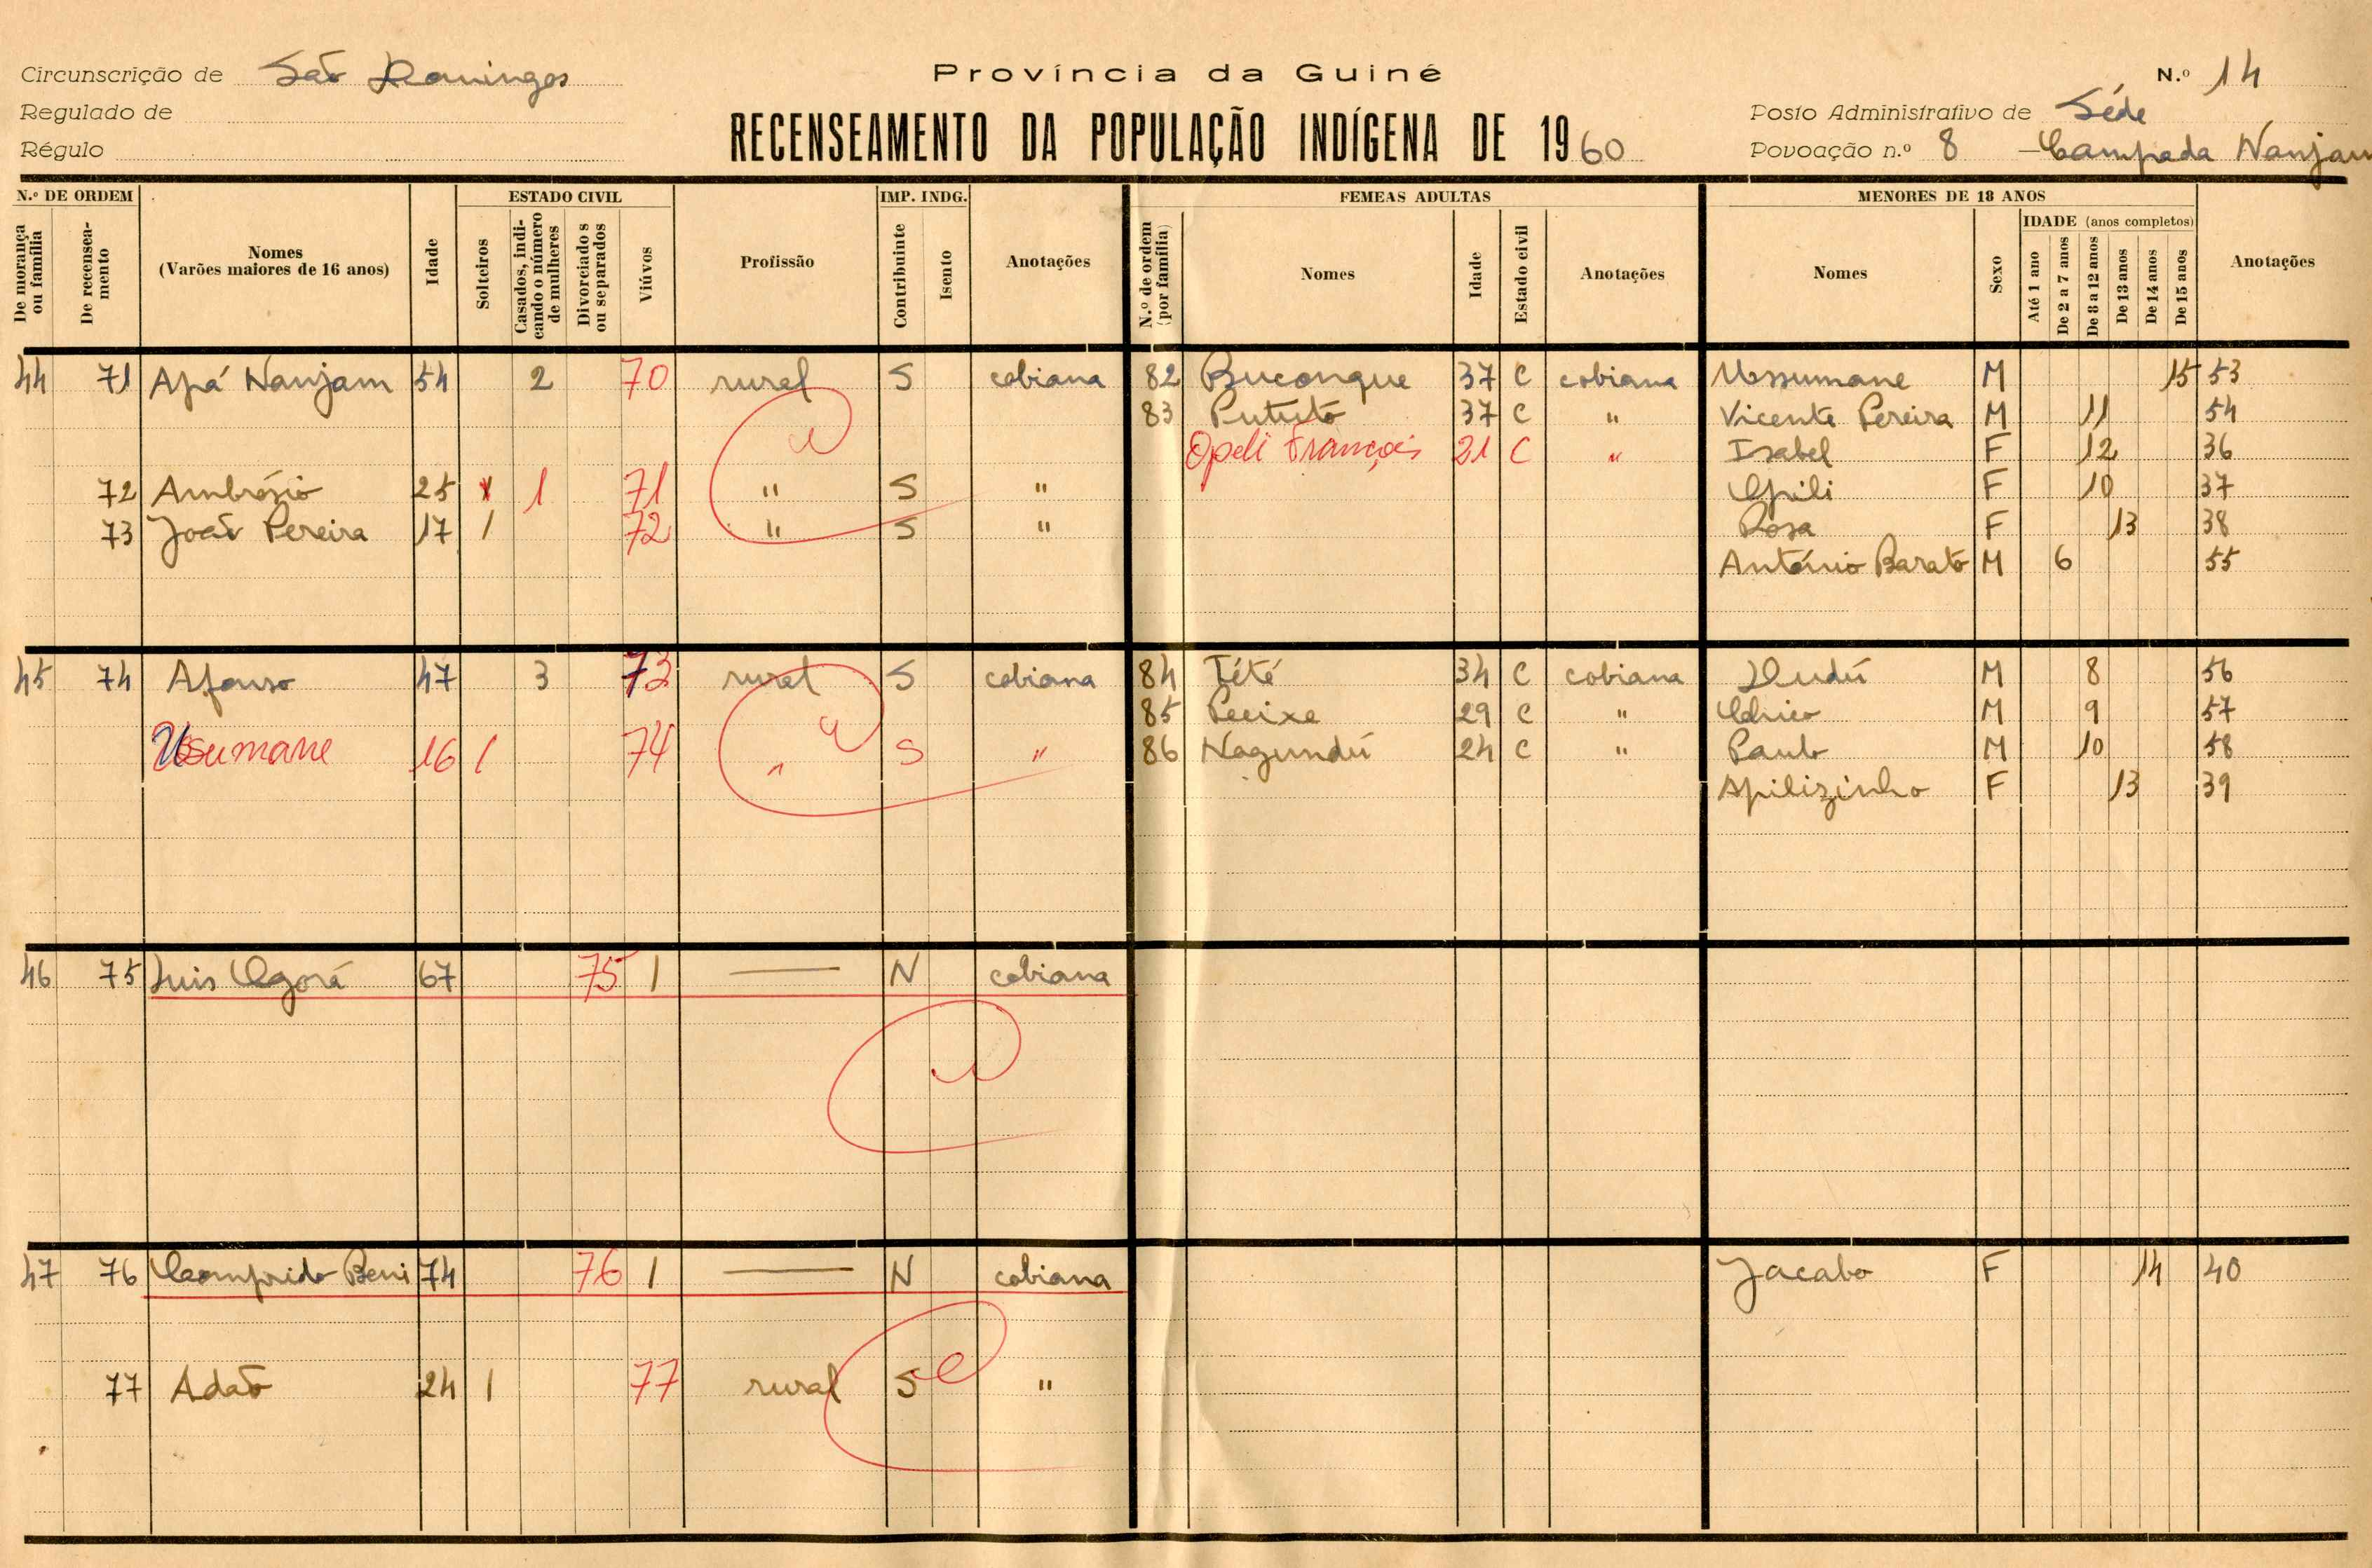 Circunscrição de São Domingos
Província da Guiné
N.º 14
Regulado de
RECENSEAMENTO DA POPULAÇÃO INDÍGENA DE 1960
Posto Administrativo de Séde
Régulo
Povoação n.º 8 - Campada Nanjam
N.º DE ORDEM
De morança ou família
De recensea-mento
Nomes
(Varões maiores de 16 anos)
Idade
ESTADO CIVIL
Solteiros
Casados, indi-cando o número de mulheres
Divorciados ou separados
Viúvos
Profissão
IMP. INDG.
Contribuinte
Isento
Anotações
FEMEAS ADULTAS
N.º de ordem (por família)
Nomes
Idade
Estado civil
Anotações
MENORES DE 18 ANOS
Nomes
Sexo
IDADE (anos completos)
Até 1 ano
De 2 a 7 anos
De 8 a 12 anos
De 13 anos
De 14 anos
De 15 anos
Anotações
44 71 Apá Nanjam 54 2 70 rural S cobiana 82 Bucongue 37 C cobiana Ussumane M 15 53
83 Pututo 37 C " Vicente Pereira M 11 54
Opeli François 21 C " Isabel F 12 36
72 Ambrósio 25 1 71 " S " F 10 37
73 João Pereira 17 1 72 " S " Rosa F 13 38
António Barato M 6 55
45 74 Afonso 47 3 73 rural S cobiana 84 Tété 34 C cobiana Dudú M 8 56
85 Pecixe 29 C " Chico M 9 57
Ussumane 16 1 74 " S " 86 Nagundú 24 C " Paulo M 10 58
Apilizinho F 13 39
46 75 Luis Agorá 67 75 1 — N cobiana
47 76 Comprido Beni 74 76 1 — N cobiana Jacabo F 14 40
77 Adão 24 1 77 rural S "